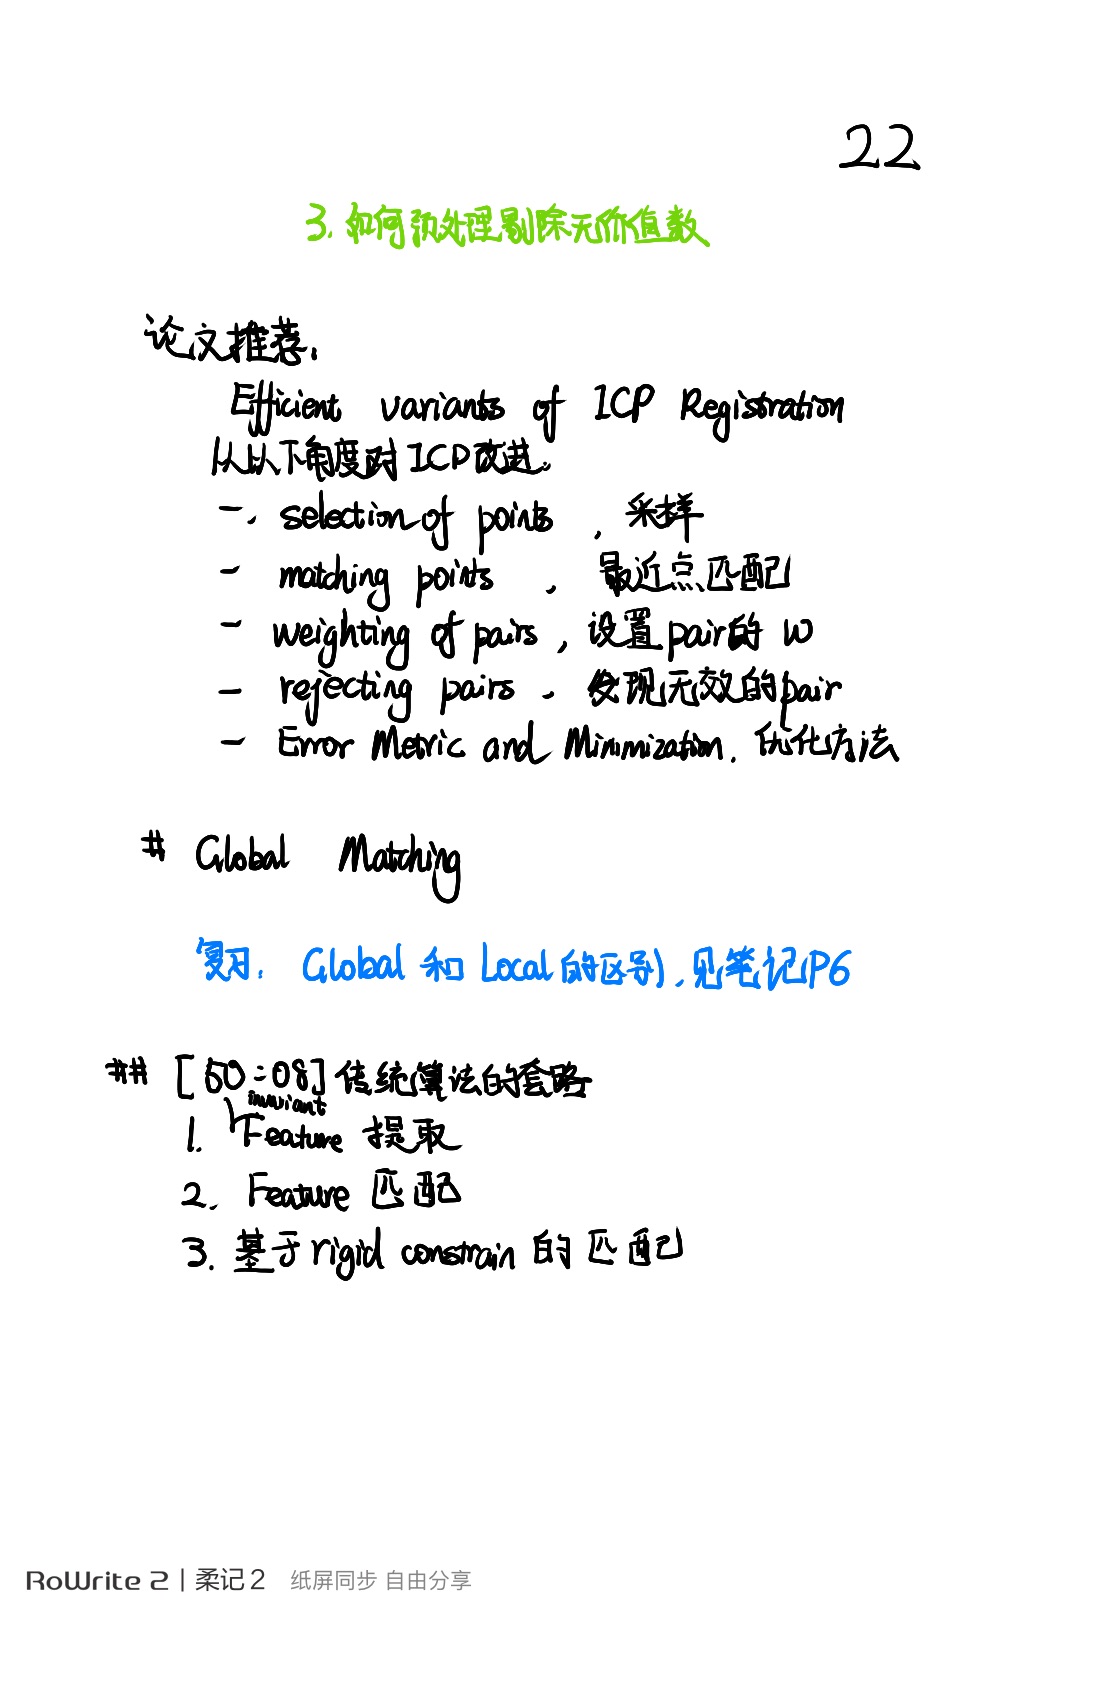 22
3. 如何预处理剔除无价值数
论文推荐:
Efficient variants of ICP Registration
从以下角度对ICP改进。
- . selection of points , 采样
- matching points , 最近点匹配
- weighting of pairs , 设置pair的 w
- rejecting pairs - 发现无效的pair
- Error Metric and Minimization. 优化方法
# Global Matching
复习: Global 和 Local 的区别, 见笔记P6
## [50:08] 传统算法的套路
invariant
1. Feature 提取
2. Feature 匹配
3. 基于 rigid constrain 的匹配
RoWrite 2 | 柔记 2 纸屏同步 自由分享